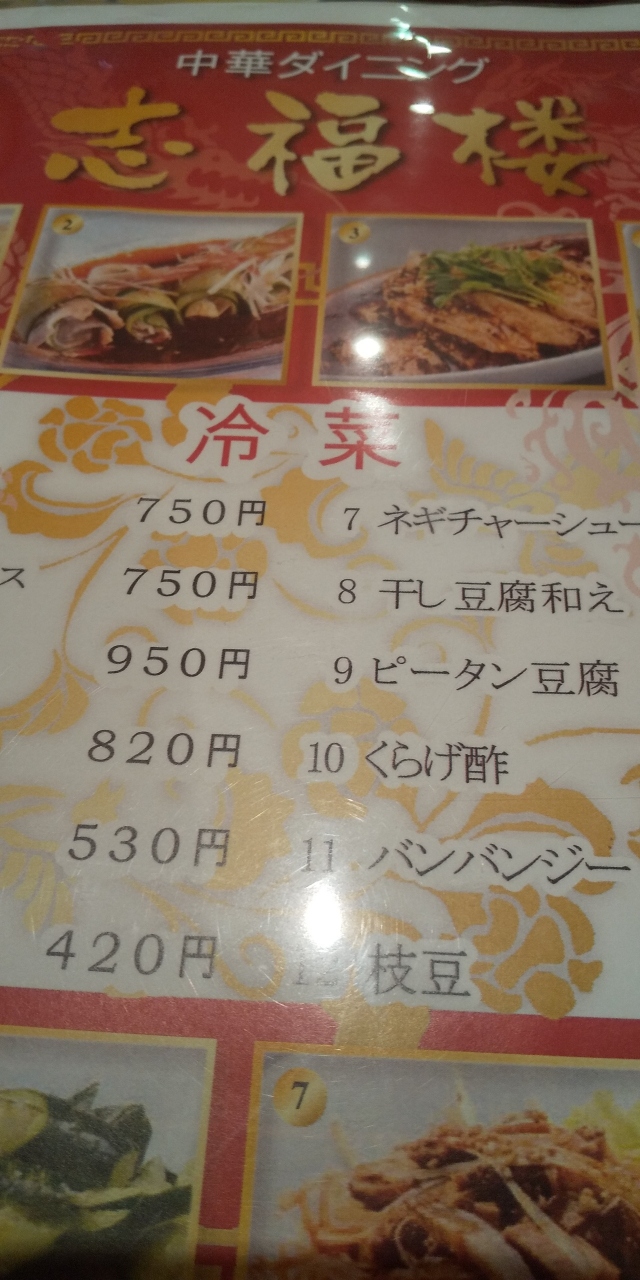 中華ダイニング
志福楼
2
3
冷菜
750円 7 ネギチャーシュー
ス 750円 8 干し豆腐和え
950円 9 ピータン豆腐
820円 10 くらげ酢
530円 11 バンバンジー
420円 12 枝豆
7